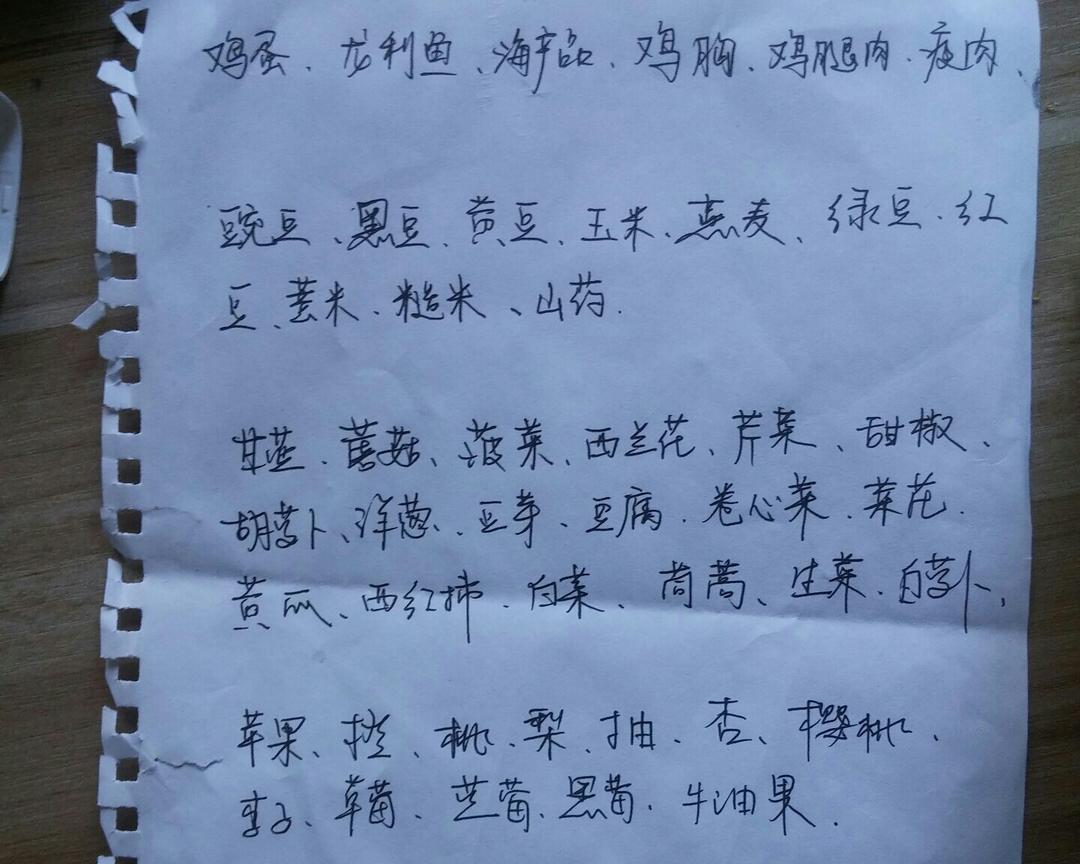 鸡蛋、龙利鱼、海产品、鸡胸、鸡腿肉、瘦肉、
豌豆、黑豆、黄豆、玉米、燕麦、绿豆、红
豆、薏米、糙米、山药.
甘蓝、蘑菇、菠菜、西兰花、芹菜、甜椒、
胡萝卜、洋葱、豆芽、豆腐、卷心菜、菜花.
黄瓜、西红柿、白菜、茼蒿、生菜、白萝卜、
苹果、橙、桃、梨、柚、杏、樱桃、
李子、草莓、蓝莓、黑莓、牛油果.